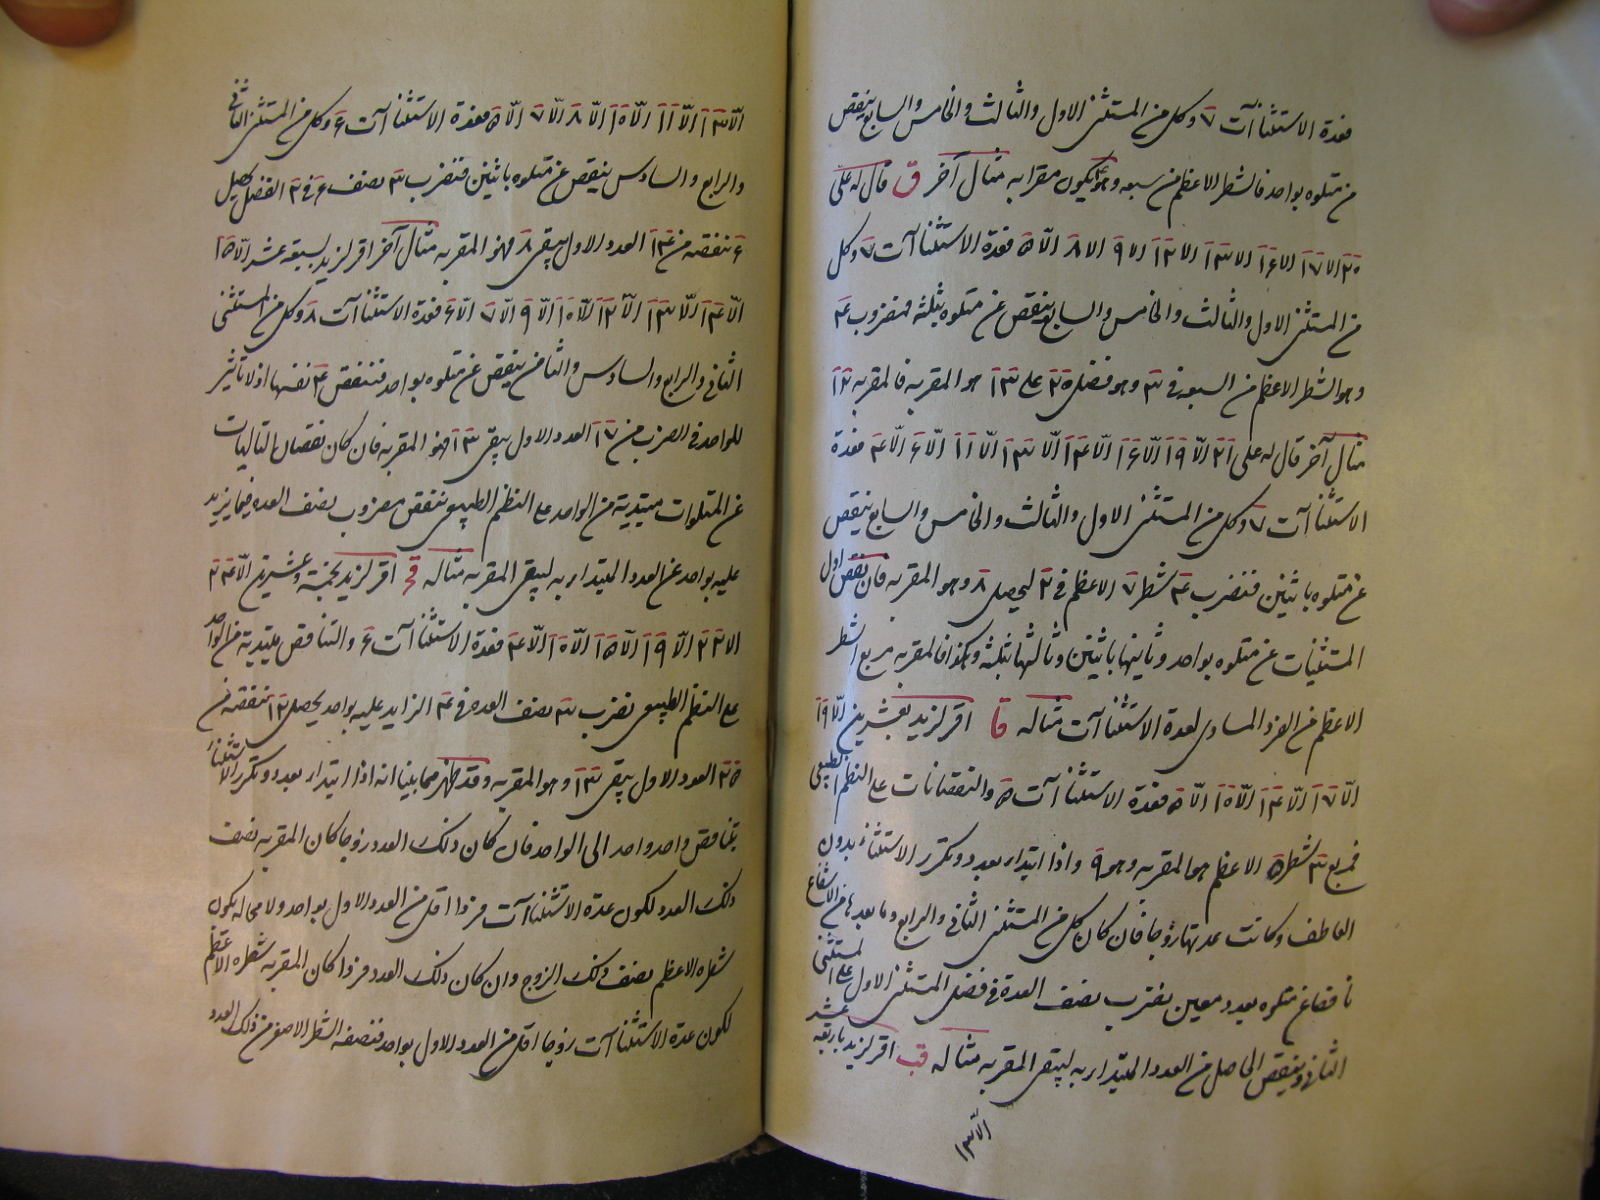 فعدة الاستثناآت ٧ وكل من المستثنى الاول والثالث والخامس والسابع ينقص
من متلوه بواحد فالشطر الاعظم من سبعه وهو ۴ يكون مقرا به مثال آخر ق قال له على
٢٠ الا ١٧ الا ١۶ الا ١٣ الا ١٢ الا ٩ الا ٨ الا ۵ فعدة الاستثناآت ٧ وكل
من المستثنى الاول والثالث والخامس والسابع ينقص عن متلوه بثلثه فمضروب ۴
وهو الشطر الاعظم من السبعه في ٣ وهو فضل ٢۵ على ١٣ هو المقر به فالمقر به ١٢
مثال آخر قال له على ٢١ الّا ١٩ الّا ١۶ الّا ١۴ الّا ١٣ الّا ١١ الّا ۶ الّا ۴ فعدة
الاستثناآت ٧ وكل من المستثنى الاول والثالث والخامس والسابع ينقص
عن متلوه باثنين فنضرب ۴ شطر ٧ الاعظم في ٢ ليحصل ٨ وهو المقر به فان نقص اول
المستثنيات عن متلوه بواحد وثانيها باثنين وثالثها بثلثه وهكذا فالمقر به مربع الشطر
الاعظم من الفرد المساوى لعدة الاستثناآت مثاله قا اقر لزيد بعشرين الّا ١٩
الّا ١٧ الّا ١۴ الّا ١٠ الّا ۵ فعدة الاستثناآت ۵ والنقصانات على النظم الطبيعى
فمربع ٣ شطر ۵ الاعظم هو المقر به وهو ٩ واذا ابتدار بعدد وتكرر الاستثناء بدون
العاطف وكانت عدتها زوجا فان كان كل من المستثنى الثانى والرابع وما بعدها من الاشفاع
ناقصا عن متلوه بعدد معين يضرب نصف العدة في فضل المستثنى الاول على المستثنى
الثانى وينقص الحاصل من العدد المبتدار به ليبقى المقر به مثاله قب اقر لزيد باربعة عشر
الّا ١٣
الّا ١٣ الّا ١١ الّا ١٠ الّا ٨ الّا ٧ الّا ۵ فعدة الاستثناآت ۶ وكل من المستثنى الثانى
والرابع والسادس ينقص عن متلوه باثنين فنضرب ٣ نصف ۶ في ٢ الفضل يحصل
۶ ننقصه من ١۴ العدد الاول يبقى ٨ فهو المقر به مثال آخر اقر لزيد بسبعة عشر الّا ١۵
الّا ١۴ الّا ١٣ الّا ١٢ الّا ١٠ الّا ٩ الّا ٧ الّا ۶ فعدة الاستثناآت ٨ وكل من المستثنى
الثانى والرابع والسادس والثامن ينقص عن متلوه بواحد فننقص ۴ نفسها اذ لا تاثير
للواحد في الضرب من ١٧ العدد الاول يبقى ١٣ فهو المقر به فان كان نقصان التاليات
عن المتلوات مبتدية من الواحد على النظم الطبيعى ننقص مضروب نصف العدة فيما يزيد
عليه بواحد عن العدد المبتدار به ليبقى المقر به مثاله قج اقر لزيد بخمسة وعشرين الّا ٢۴
الا ٢٢ الّا ١٩ الّا ١۵ الّا ١٠ الّا ۴ فعدة الاستثناآت ۶ والتناقص مبتدية من الواحد
على النظم الطبيعى نضرب ٣ نصف العدة في ۴ الزايد عليه بواحد يحصل ١٢ ننقصه من
٢۵ العدد الاول يبقى ١٣ وهو المقر به وقد ظهر مما بينا انه اذا ابتدار بعدد وتكرر الاستثناء
بتناقص واحد واحد الى الواحد فان كان ذلك العدد زوجا كان المقر به نصف
ذلك العدد لكون عدة الاستثناآت فردا اقل من العدد الاول بواحد ولا محاله يكون
شطره الاعظم نصف ذلك الزوج وان كان ذلك العدد فردا كان المقر به شطره الاعظم
لكون عدة الاستثناآت زوجا اقل من العدد الاول بواحد فنصفه الشطر الاصغر من ذلك العدد